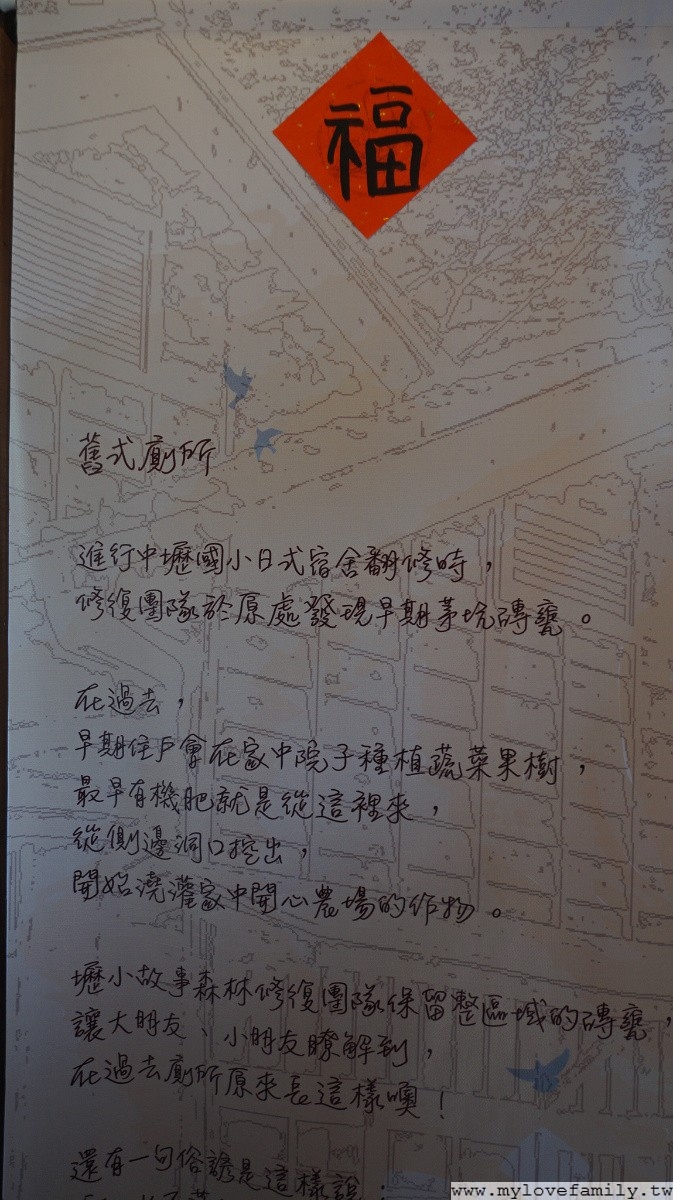 福
舊式廁所
進行中壢國小日式宿舍翻修時，
修復團隊於原處發現早期茅坑磚甕。
在過去，
早期住戶會在家中院子種植蔬菜果樹，
最早有機肥就是從這裡來，
從側邊洞口挖出，
開始澆灌家中開心農場的作物。
壢小故事森林修復團隊保留整區域的磚甕，
讓大朋友、小朋友瞭解到，
在過去廁所原來長這樣噢！
還有一句俗諺是這樣說：
www.mylovefamily.tw